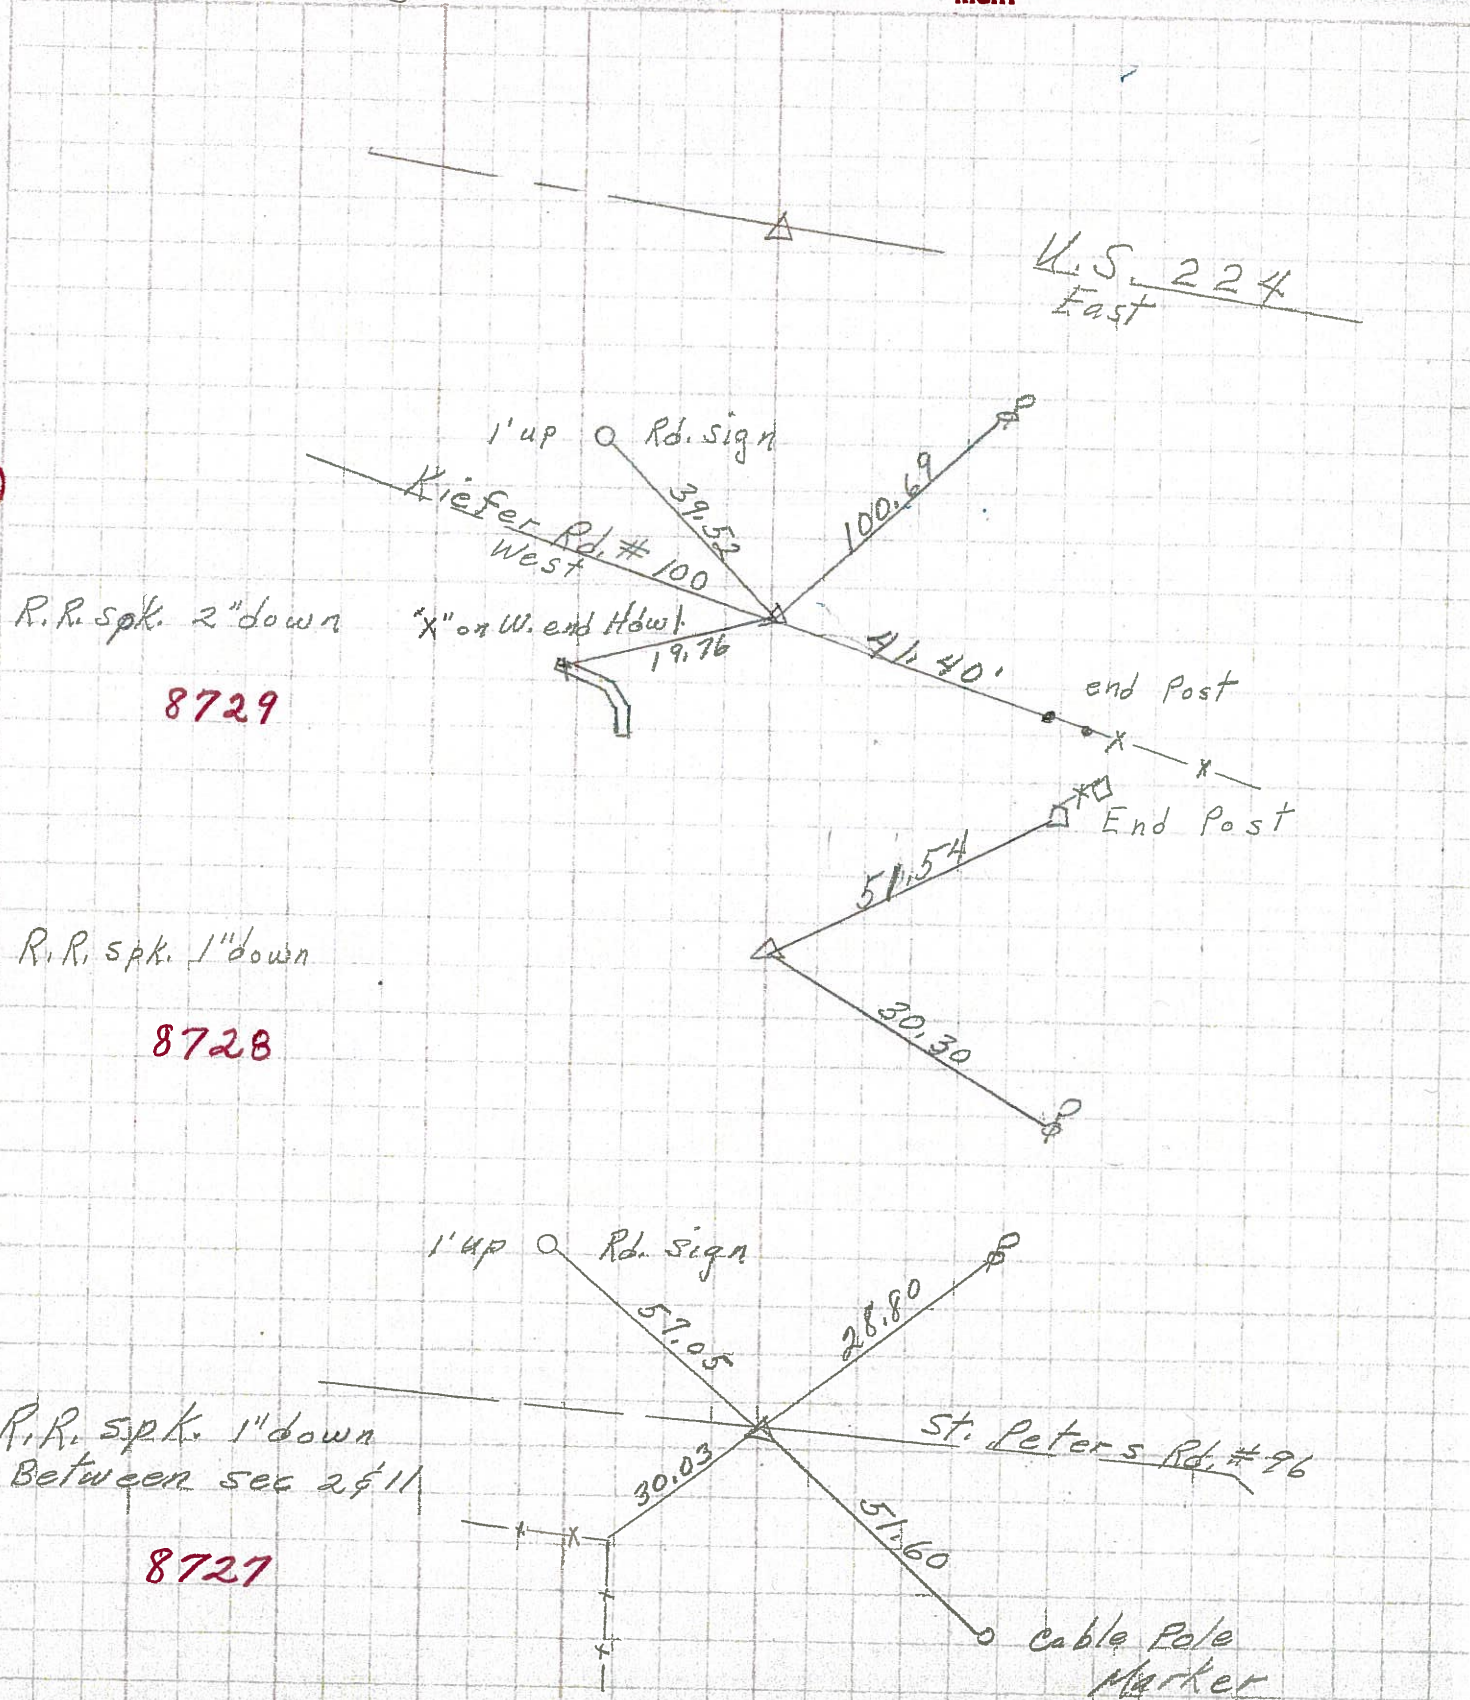 U.S. 224
East
1'up Rd. sign
Kiefer Rd. # 100
West
39.52
100.69
R.R. spk. 2"down
"X" on W. end Hdwl.
19.76
41.40'
end Post
8729
End Post
51.54
R.R. spk. 1"down
30.30
8728
1'up Rd. Sign
57.05
28.80
R.R. spk. 1"down
Between sec 2 & 11
St. Peters Rd. # 96
30.03
51.60
8727
Cable Pole
Marker